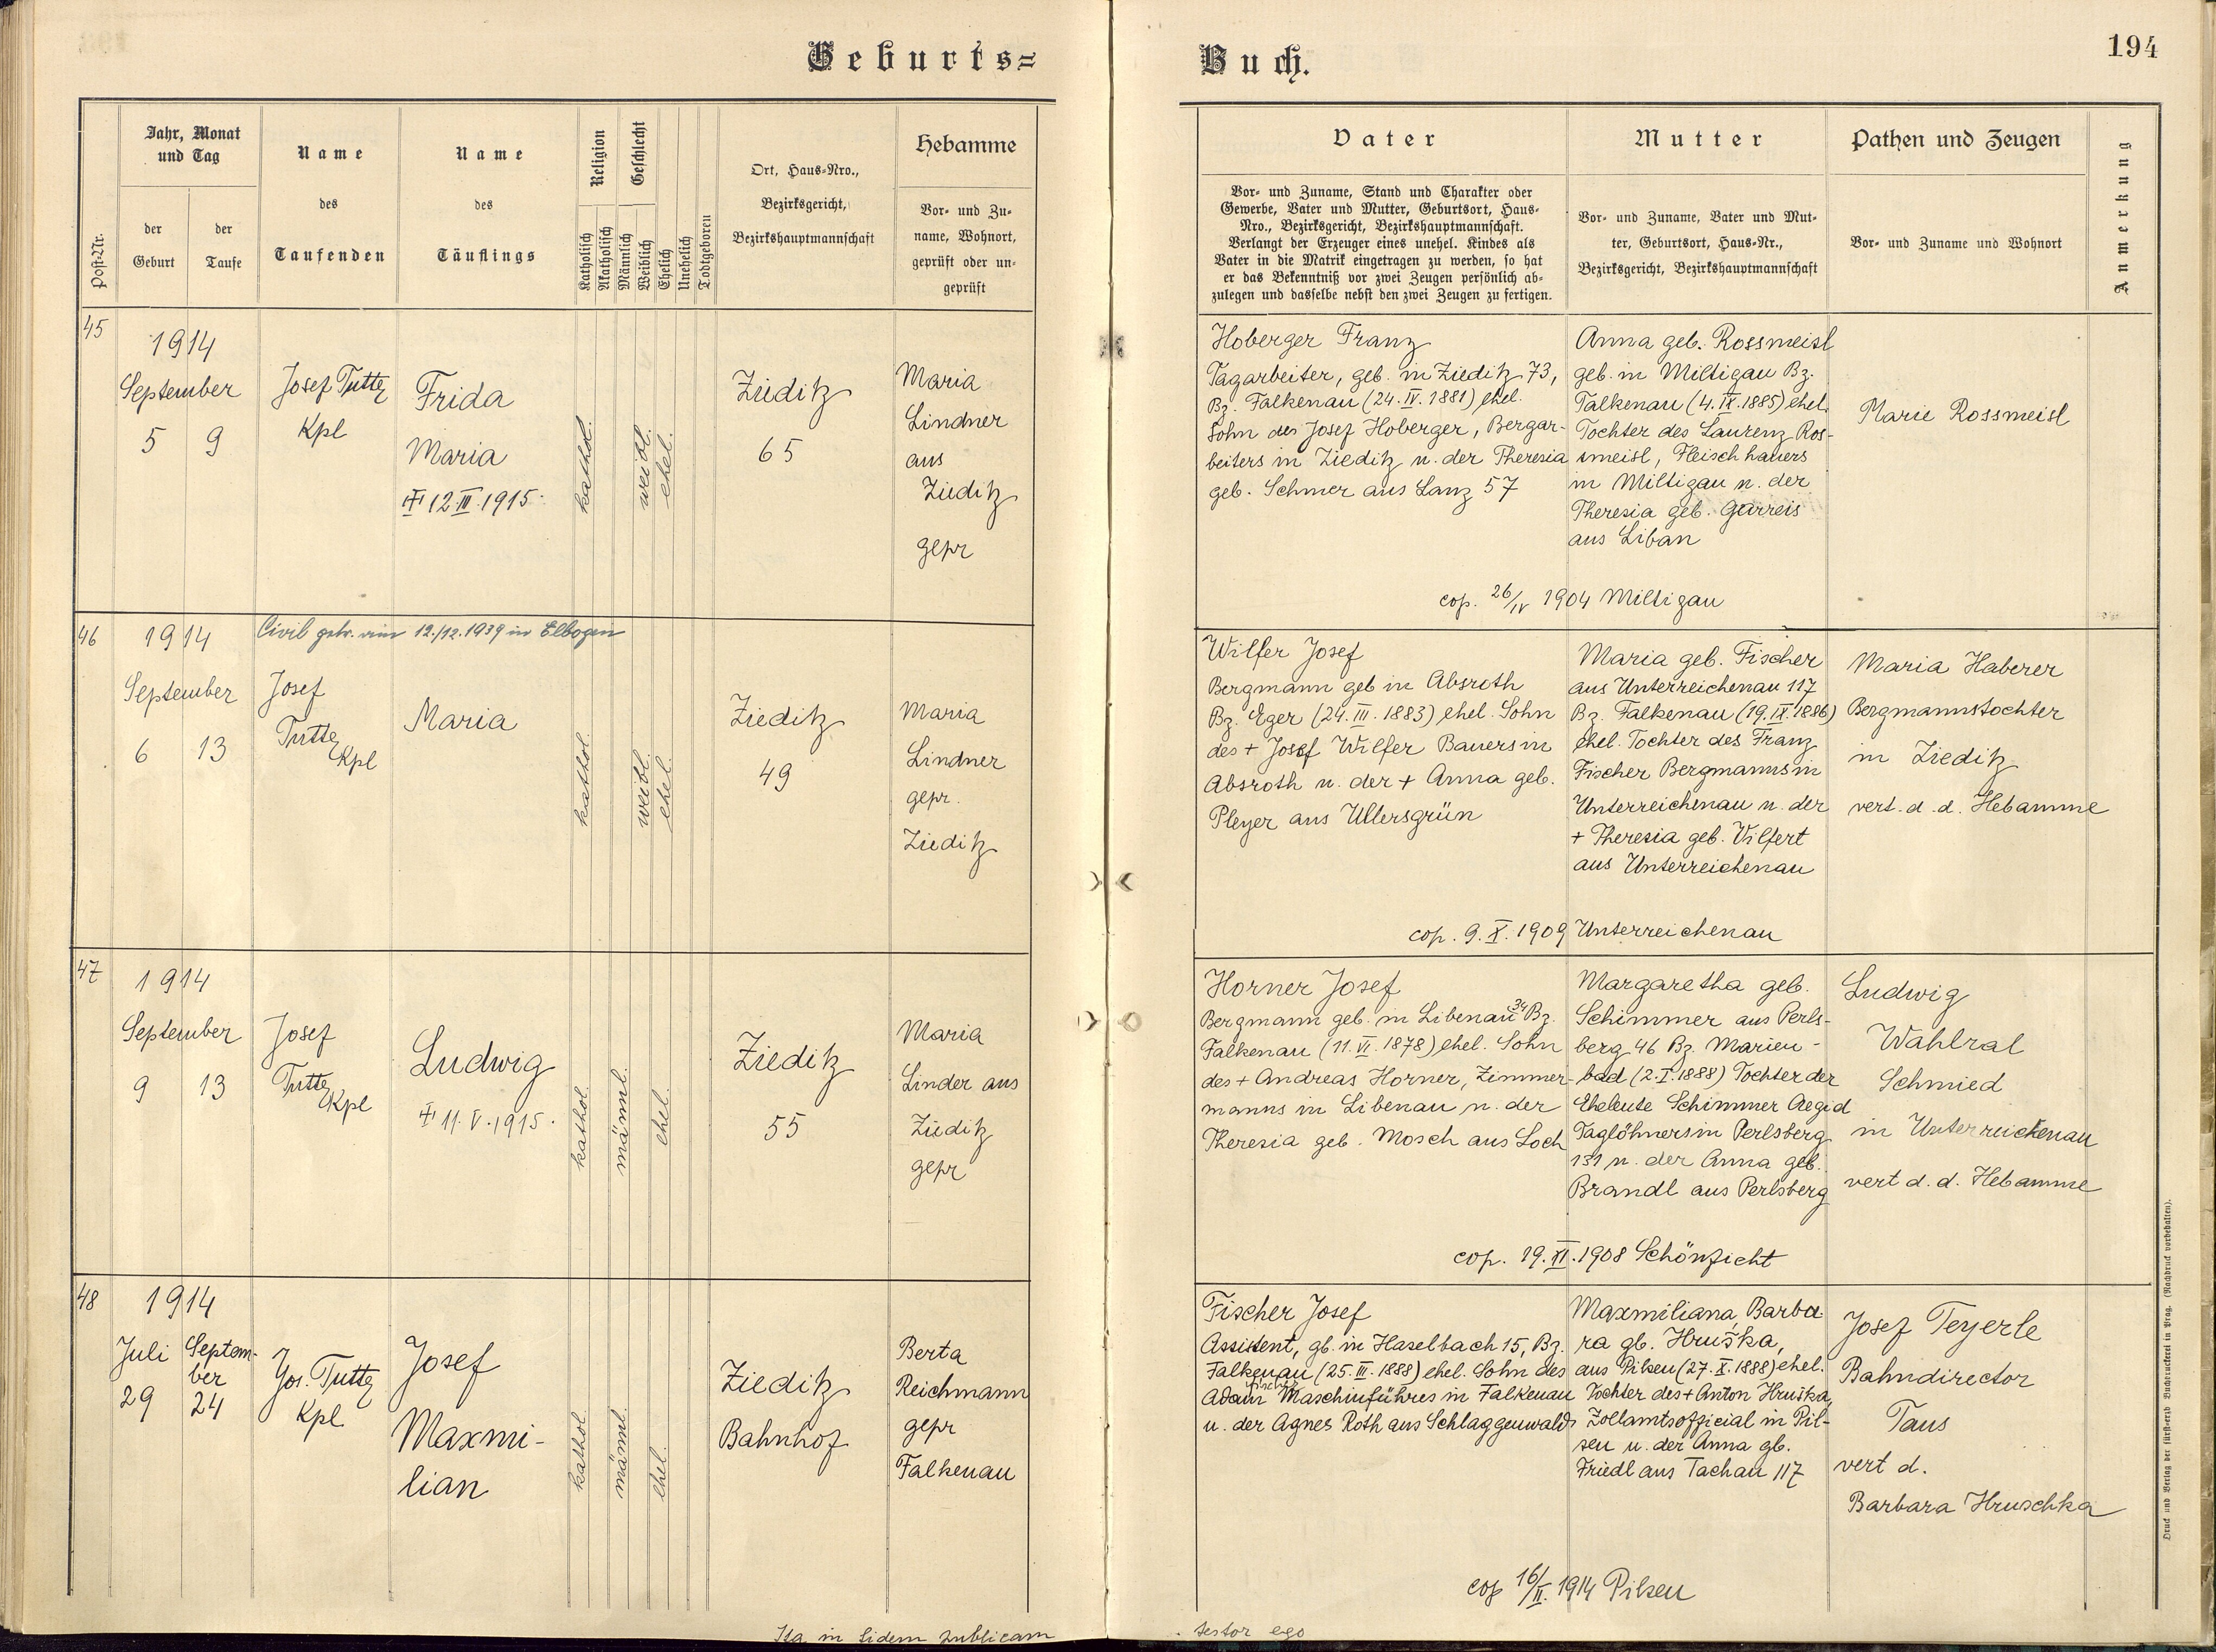 Geburts=
Buch.
194
Post-Nr.
Jahr, Monat
und Tag
der
Geburt
der
Taufe
Name
des
Taufenden
Name
des
Täuflings
Religion
Katholisch
Akatholisch
Geschlecht
Männlich
Weiblich
Ehelich
Unehelich
Todtgeboren
Ort, Haus-Nro.,
Bezirksgericht,
Bezirkshauptmannschaft
Hebamme
Vor- und Zu-
name, Wohnort,
geprüft oder un-
geprüft
Vater
Vor- und Zuname, Stand und Charakter oder
Gewerbe, Vater und Mutter, Geburtsort, Haus-
Nro., Bezirksgericht, Bezirkshauptmannschaft.
Verlangt der Erzeuger eines unehel. Kindes als
Vater in die Matrik eingetragen zu werden, so hat
er das Bekenntniß vor zwei Zeugen persönlich ab-
zulegen und dasselbe nebst den zwei Zeugen zu fertigen.
Mutter
Vor- und Zuname, Vater und Mut-
ter, Geburtsort, Haus-Nr.,
Bezirksgericht, Bezirkshauptmannschaft
Pathen und Zeugen
Vor- und Zuname und Wohnort
Anmerkung
45
1914
September
5 9
Josef Tutte
Kpl
Frida
Maria
12 III. 1915.
kathol.
weibl.
ehel.
Zieditz
65
Maria
Lindner
aus
Zieditz
gepr
Hoberger Franz
Tagarbeiter, geb. in Zieditz 73,
Bz. Falkenau (24. IV. 1881) ehel.
Sohn des Josef Hoberger, Bergar-
beiters in Zieditz u. der Theresia
geb. Schmer aus Lanz 57
Anna geb. Rossmeisl
geb. in Miltigau Bz.
Falkenau (4. IX. 1885) ehel.
Tochter des Laurenz Ros-
smeisl, Fleischhauers
in Miltigau u. der
Theresia geb. Garreis
aus Liban
Marie Rossmeisl
cop. 26/IV 1904 Miltigau
46
1914
September
6 13
Civil getr. 12./12. 1939 in Elbogen
Josef
Tutte
Kpl
Maria
kathol.
weibl.
ehel.
Zieditz
49
Maria
Lindner
gepr.
Zieditz
Wilfer Josef
Bergmann geb in Absroth
Bz. Eger (24. III. 1883) ehel. Sohn
des + Josef Wilfer Bauers in
Absroth u. der + Anna geb.
Pleyer aus Ullersgrün
Maria geb. Fischer
aus Unterreichenau 117
Bz. Falkenau (19. IX. 1886)
ehel. Tochter des Franz
Fischer Bergmanns in
Unterreichenau u. der
+ Theresia geb. Vilfert
aus Unterreichenau
Maria Haberer
Bergmannstochter
in Zieditz
vert. d. d. Hebamme
cop. 9. X. 1909 Unterreichenau
47
1914
September
9 13
Josef
Tutte
Kpl
Ludwig
11. V. 1915.
kathol.
männl.
ehel.
Zieditz
55
Maria
Linder aus
Zieditz
gepr
Horner Josef
Bergmann geb. in Libenau 34 Bz.
Falkenau (11. VI. 1878) ehel. Sohn
des + Andreas Horner, Zimmer-
manns in Libenau u. der
Theresia geb. Mosch aus Loch
Margaretha geb.
Schimmer aus Perls-
berg 46 Bz. Marien-
bad (2. I. 1888) Tochter der
Eheleute Schimmer Aegid
Taglöhners in Perlsberg
131 u. der Anna geb.
Brandl aus Perlsberg
Ludwig
Wahlral
Schmied
in Unterreichenau
vert d. d. Hebamme
cop. 19. XI. 1908 Schönficht
48
1914
Juli
29
Septem-
ber
24
Jos. Tutte
Kpl
Josef
Maxmi-
lian
kathol.
männl.
ehel.
Zieditz
Bahnhof
Berta
Reichmann
gepr
Falkenau
Fischer Josef
Assistent, gb. in Haselbach 15, Bz.
Falkenau (25. III. 1888) ehel. Sohn des
Fischer
Adam Maschinführers in Falkenau
u. der Agnes Roth aus Schlaggenwald
Maxmiliana, Barba-
ra gb. Hruška,
aus Pilsen (27. X. 1888) ehel.
Tochter des + Anton Hruška,
Zollamtsofficial in Pil-
sen u. der Anna gb.
Friedl aus Tachau 117
Josef Teyerle
Bahndirector
Taus
vert d.
Barbara Hruschka
cop 16/II. 1914 Pilsen
Ita in fidem publicam
testor ego
Druck und Verlag der fürst-erzb Buchdruckerei in Prag. (Nachdruck vorbehalten).